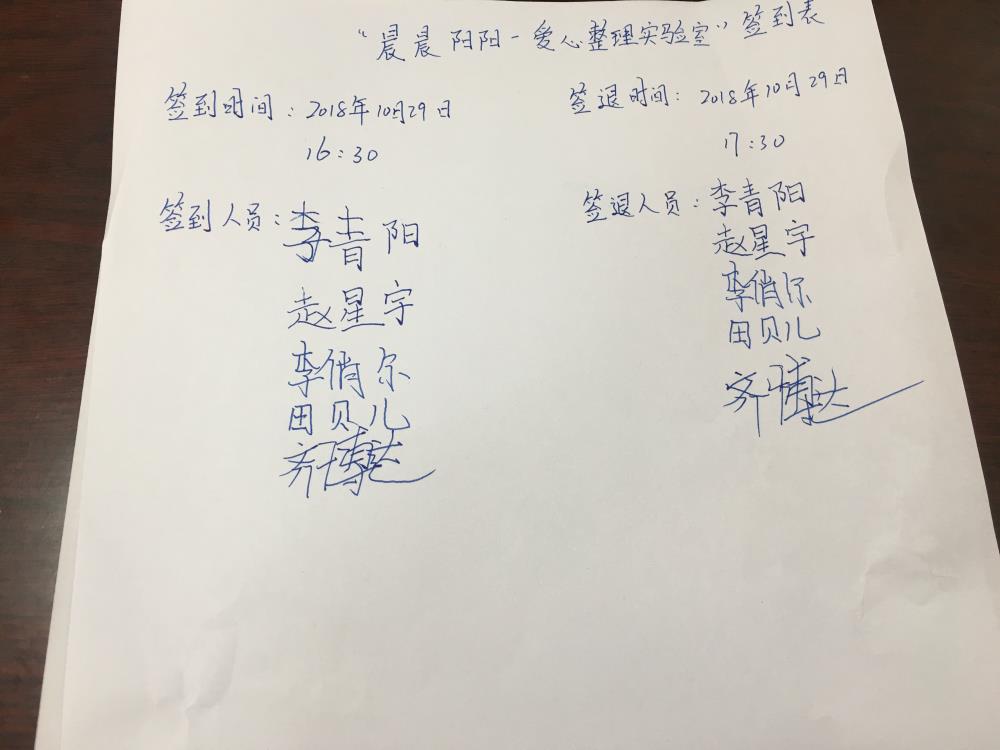 “晨晨阳阳-爱心整理实验室”签到表
签到时间：2018年10月29日
16:30
签到人员：李青阳
赵星宇
李俏尔
田贝儿
齐博达
签退时间：2018年10月29日
17:30
签退人员：李青阳
赵星宇
李俏尔
田贝儿
齐博达